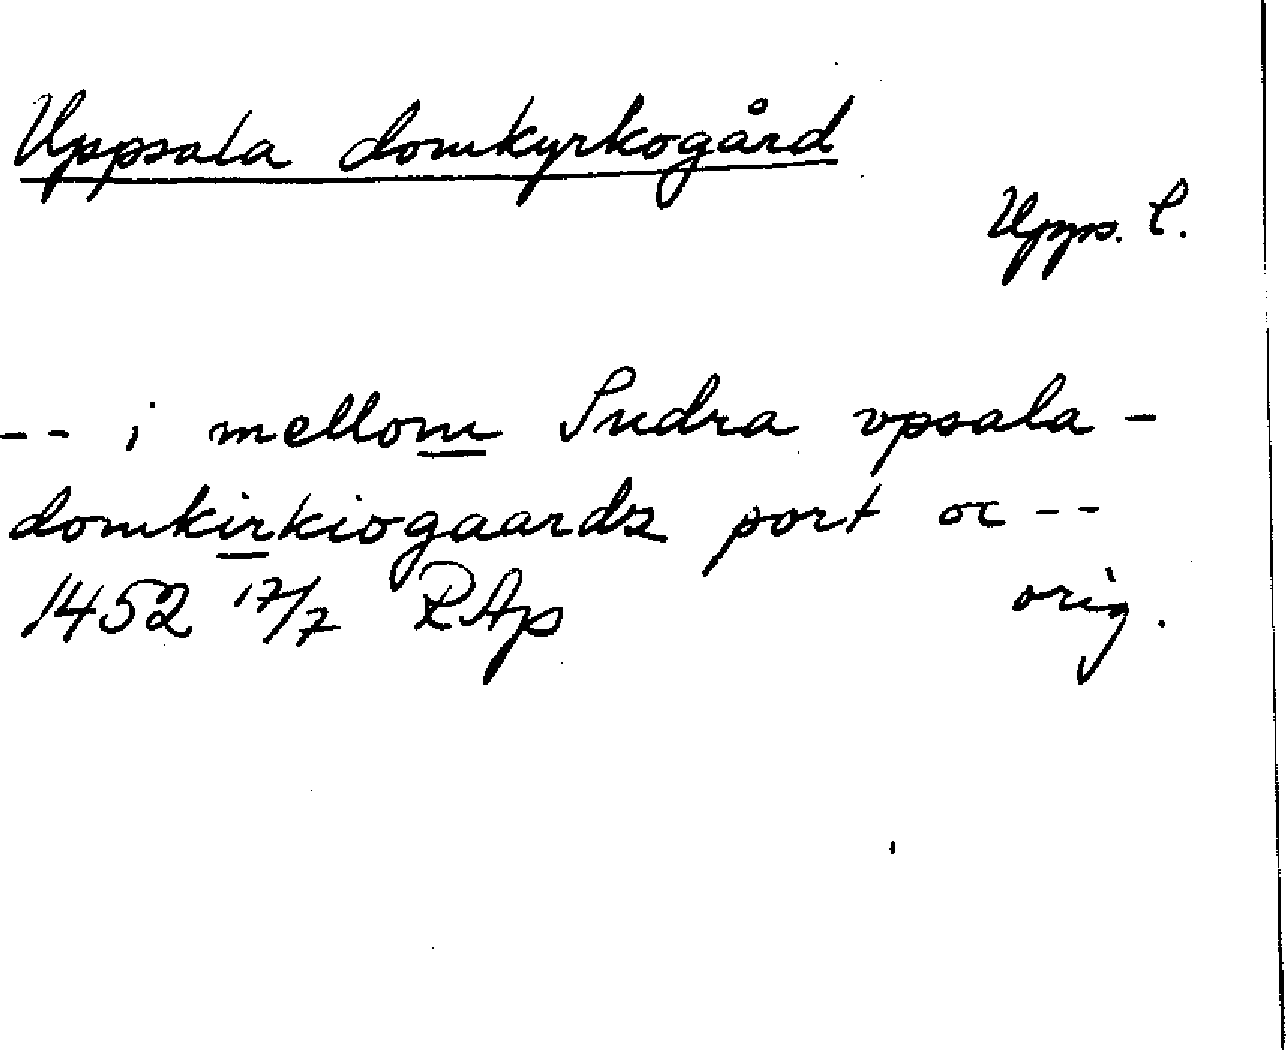 Uppsala domkyrkogård
Upps. l.
-- i mellom Sudra vpsala -
domkirkiogaardz port oc --
1452 17/7 RAp orig.